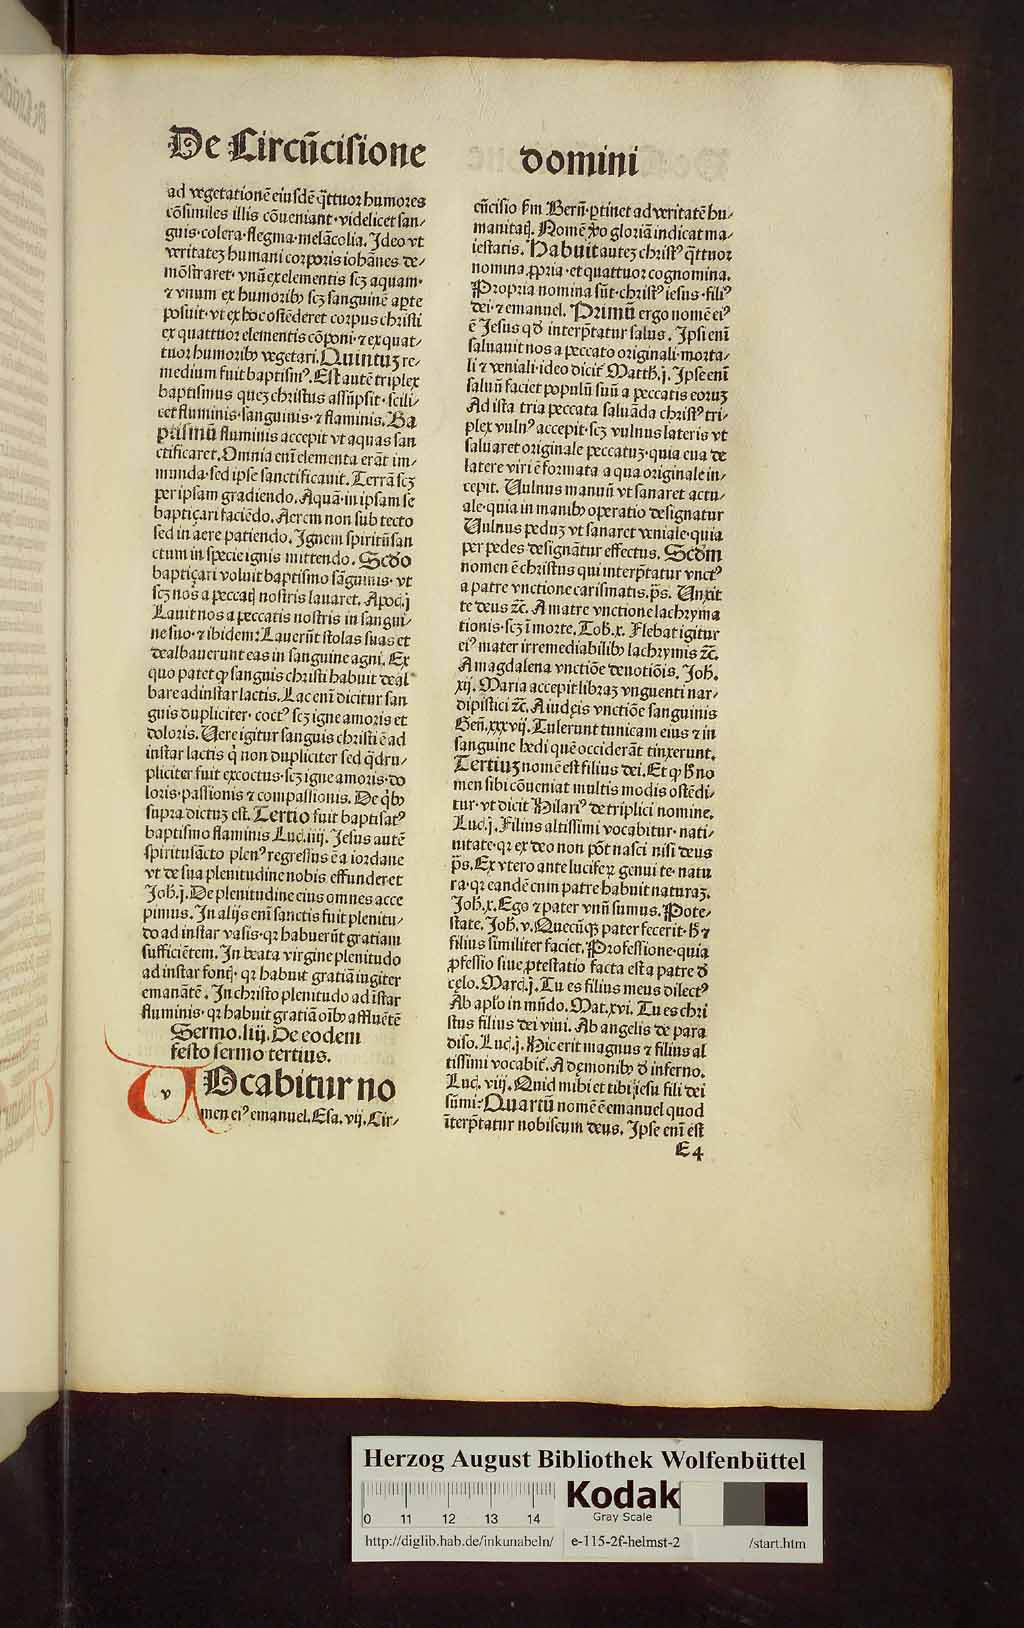 De Circūcisione domini
ad vegetationē eiusdē q̄ttuor humores
cōsimiles illis cōueniant· videlicet san⸗
guis·colera·flegma·melācolia. Ideo vt
veritatez humani corporis iohānes de⸗
mōstraret· vnū ex elementis scꝫ aquam·
⁊ vnum ex humoribꝰ scꝫ sanguinē aperte
posuit·vt ex hoc ostēderet corpus christi
ex quattuor elementis cōponi·⁊ ex quat⸗
tuor humoribꝰ vegetari. Quintuꝫ re⸗
medium fuit baptismꝰ. Est autē triplex
baptismus quez christus assūpsit·scili⸗
cet fluminis·sanguinis·⁊ flaminis. Ba
ptismū fluminis accepit vt aquas san
ctificaret. Omnia enī elementa erāt im⸗
munda·sed ipse sanctificauit. Terrā scꝫ
per ipsam gradiendo. Aquā·in ipsam se
baptiçari faciēdo. Aerem non sub tecto
sed in aere patiendo. Ignem spiritū san
ctum in specie ignis mittendo. Scdo
baptiçari voluit baptismo sāguinis· vt
scꝫ nos a peccatꝭ nostris lauaret. Apoc.j
Lauit nos a peccatis nostris in sangui⸗
ne suo·⁊ ibidem: Lauerūt stolas suas et
dealbauerunt eas in sanguine agni. Ex
quo patet ꝙ sanguis christi habuit deal
bare ad instar lactis. Lac enī dicitur san
guis dupliciter·coctꝰ scꝫ igne amoris et
doloris. Uere igitur sanguis christi ē ad
instar lactis q̇ non dupliciter sed q̄dru⸗
pliciter fuit excoctus·scꝫ igne amoris·do
loris·passionis ⁊ compassionis. De q̇bꝰ
supra dictuꝫ est. Tertio fuit baptisatꝰ
baptismo flaminis Luc.iiij. Jesus autē
spiritusācto plenꝰ regressus ē a iordane
vt de sua plenitudine nobis effunderet
Joh.j. De plenitudine eius omnes acce
pimus. In alijs enī sanctis fuit plenitu⸗
do ad instar vasis·qꝛ habuerūt gratiam
sufficiētem. In beata virgine plenitudo
ad instar fontꝭ· qꝛ habuit gratiā iugiter
emanātē. In christo plenitudo ad īstar
fluminis·qꝛ habuit gratiā oībꝰ affluētē
Sermo.liij. De eodem
festo sermo tertius.
v UOcabitur no
men eiꝰ emanuel. Esa. vij. Cir⸗
cūcisio ẜm Bern̄·ꝑtinet ad veritatē hu⸗
manitatꝭ. Nomē ꝟo gloriā indicat ma⸗
iestatis. Habuit autez christꝰ q̄ttuor
nomina ꝓpria·et quattuor cognomina.
Propria nomina sūt·christꝰ iesus·filiꝰ
dei·⁊ emanuel. Primū ergo nomē eiꝰ
ē Jesus qđ interp̄tatur salus. Ipsi enī
saluauit nos a peccato originali·morta⸗
li ⁊ veniali·ideo dicit̄ Matth.j. Ipse enī
saluū faciet populū suū a peccatis eoruꝫ
Ad ista tria peccata saluāda christꝰ tri⸗
plex vulnꝰ accepit·scꝫ vulnus lateris vt
saluaret originale peccatuꝫ·quia eua de
latere viri ē formata a qua originale in⸗
cepit. Uulnus manuū vt sanaret actu⸗
ale·quia in manibꝰ operatio designatur
Uulnus peduꝫ vt sanaret veniale·quia
per pedes designātur effectus. Scdm
nomen ē christus qui interp̄tatur vnctꝰ
a patre vnctione carismatis. p̄s. Unxit
te deus ⁊c̄. A matre vnctione lachryma
tionis·scꝫ ī morte. Tob.x. Flebat igitur
eiꝰ mater irremediabilibꝰ lachrymis ⁊c̄.
A magdalena vnctiōe deuotiōis. Joh.
xij. Maria accepit libraꝫ vnguenti nar⸗
di pistici ⁊c̄. A iudęis vnctiōe sanguinis
Gen̄.xxxvij. Tulerunt tunicam eius ⁊ in
sanguine hedi quē occiderāt tinxerunt.
Tertiuꝫ nomē est filius dei. Et ꝙ hͦ no
men sibi cōueniat multis modis ostēdi⸗
tur·vt dicit Hilariꝰ de triplici nomine.
Luc.j. Filius altissimi vocabitur·nati⸗
uitate·qꝛ ex deo non pōt nasci nisi deus
p̄s. Ex vtero ante luciferꝝ genui te·natu
ra·qꝛ eandē cum patre habuit naturaꝫ.
Joh.x. Ego ⁊ pater vnū sumus. Pote⸗
state. Joh. v. Quęcūqꝫ pater fecerit·hͦ ⁊
filius similiter faciet. Professione·quia
ꝓfessio siue ꝓtestatio facta est a patre đ
cęlo. Marc.j. Tu es filius meus dilectꝰ
Ab aplo in mūdo. Mat.xvi. Tu es chri
stus filius dei viui. Ab angelis de para
diso. Luc.j. Hic erit magnus ⁊ filius al
tissimi vocabit̄. A dęmonibꝰ đ inferno.
Luc. viij. Quid mihi et tibi iesu fili dei
sūmi: Quartū nomē ē emanuel quod
īterp̄tatur nobiscum deus. Ipse enī est
E4
Herzog August Bibliothek Wolfenbüttel
0 11 12 13 14
Kodak
Gray Scale
http://diglib.hab.de/inkunabeln/ e-115-2f-helmst-2 /start.htm